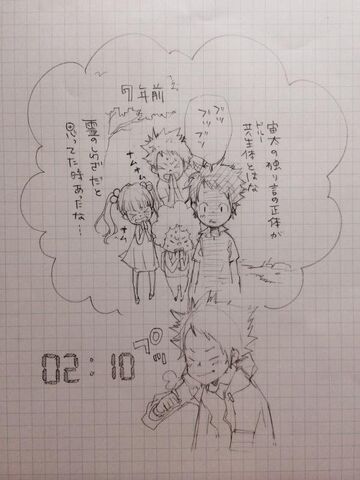 7年前
ブツ
ブツブツ
宙太の独り言の正体が
ビルー
共生体とはな
ナムナム
ナム
ナム
霊のしわざだと
思ってた時あったな…
02:10
プッ